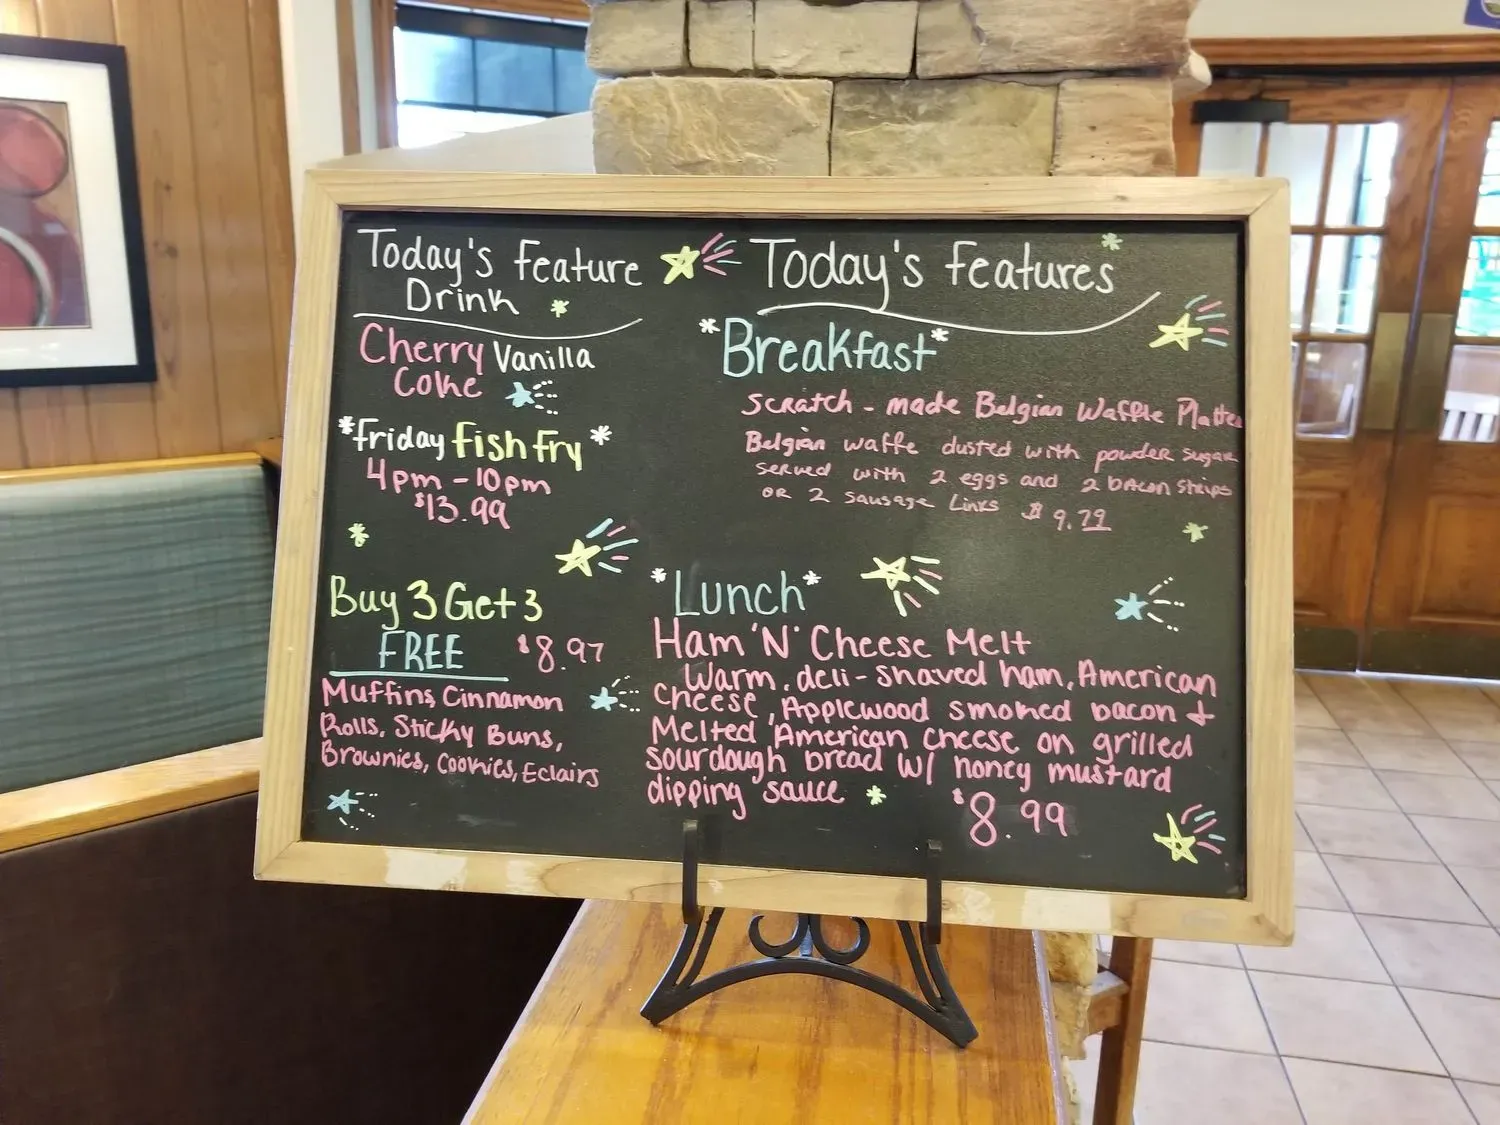 Today's Feature
Drink
Cherry Vanilla
Coke
*Friday Fish Fry*
4pm - 10pm
$13.99
Buy 3 Get 3
FREE $8.97
Muffins, Cinnamon
Rolls, Sticky Buns,
Brownies, Cookies, Eclairs
Today's Features
*Breakfast*
Scratch - made Belgian Waffle Platter
Belgian waffe dusted with powder sugar
served with 2 eggs and 2 bacon strips
or 2 sausage links $9.79
*Lunch*
Ham 'N' Cheese Melt
Warm, deli-shaved ham, American
cheese, Applewood smoked bacon &
Melted American cheese on grilled
sourdough bread w/ honey mustard
dipping sauce $8.99